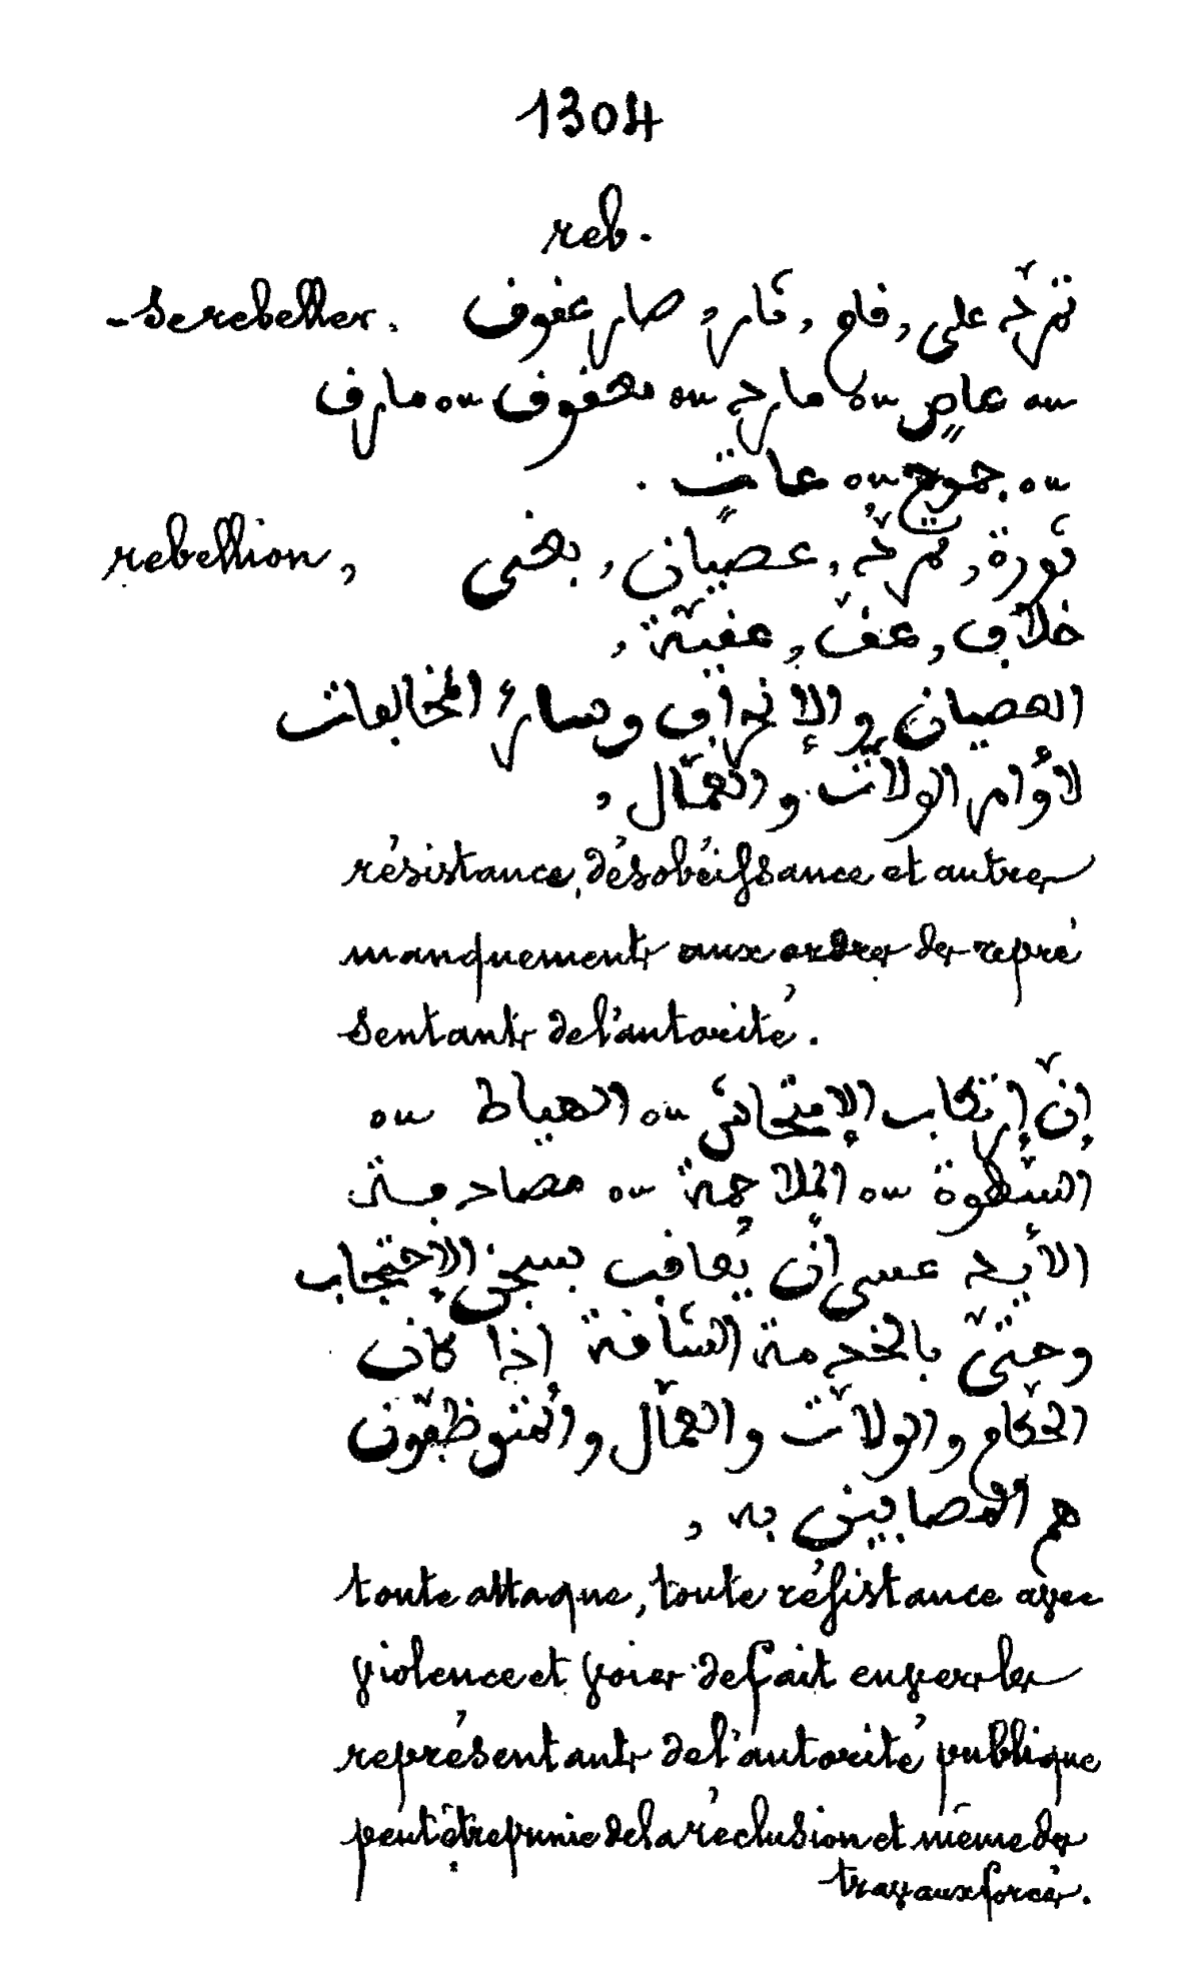 1304
reb.
- Se rebeller. تمرّد على, فام, ثار, صار عفوف
ou عاصٍ ou مارد ou معفوف ou مارف
ou جموح ou عاتٍ .
rebellion, ثورة, تمرّد, عصيان, بغى
خلاف, عفّ, عفيّة,
العصيان والإنحراف وسائر المخالفات
لأوامر الولات والعمّال,
résistance, désobéissance et autres
manquements aux ordres des repré
sentants de l'autorité.
إنّ إرتكاب الإمتحاش ou العياط ou
السّطوة ou الملاحمة ou مصادمة
الأيد عسى أن يُعاقب بسجن الإحتجاب
وحتّى بالخدمة الشافة إذا كان
الحكّام والولات والعمّال والمتوظّفون
هم المصابين به,
toute attaque, toute résistance avec
violence et voies de fait envers les
représentants de l'autorité publique
peut être punie de la réclusion et même des
travaux forcés.